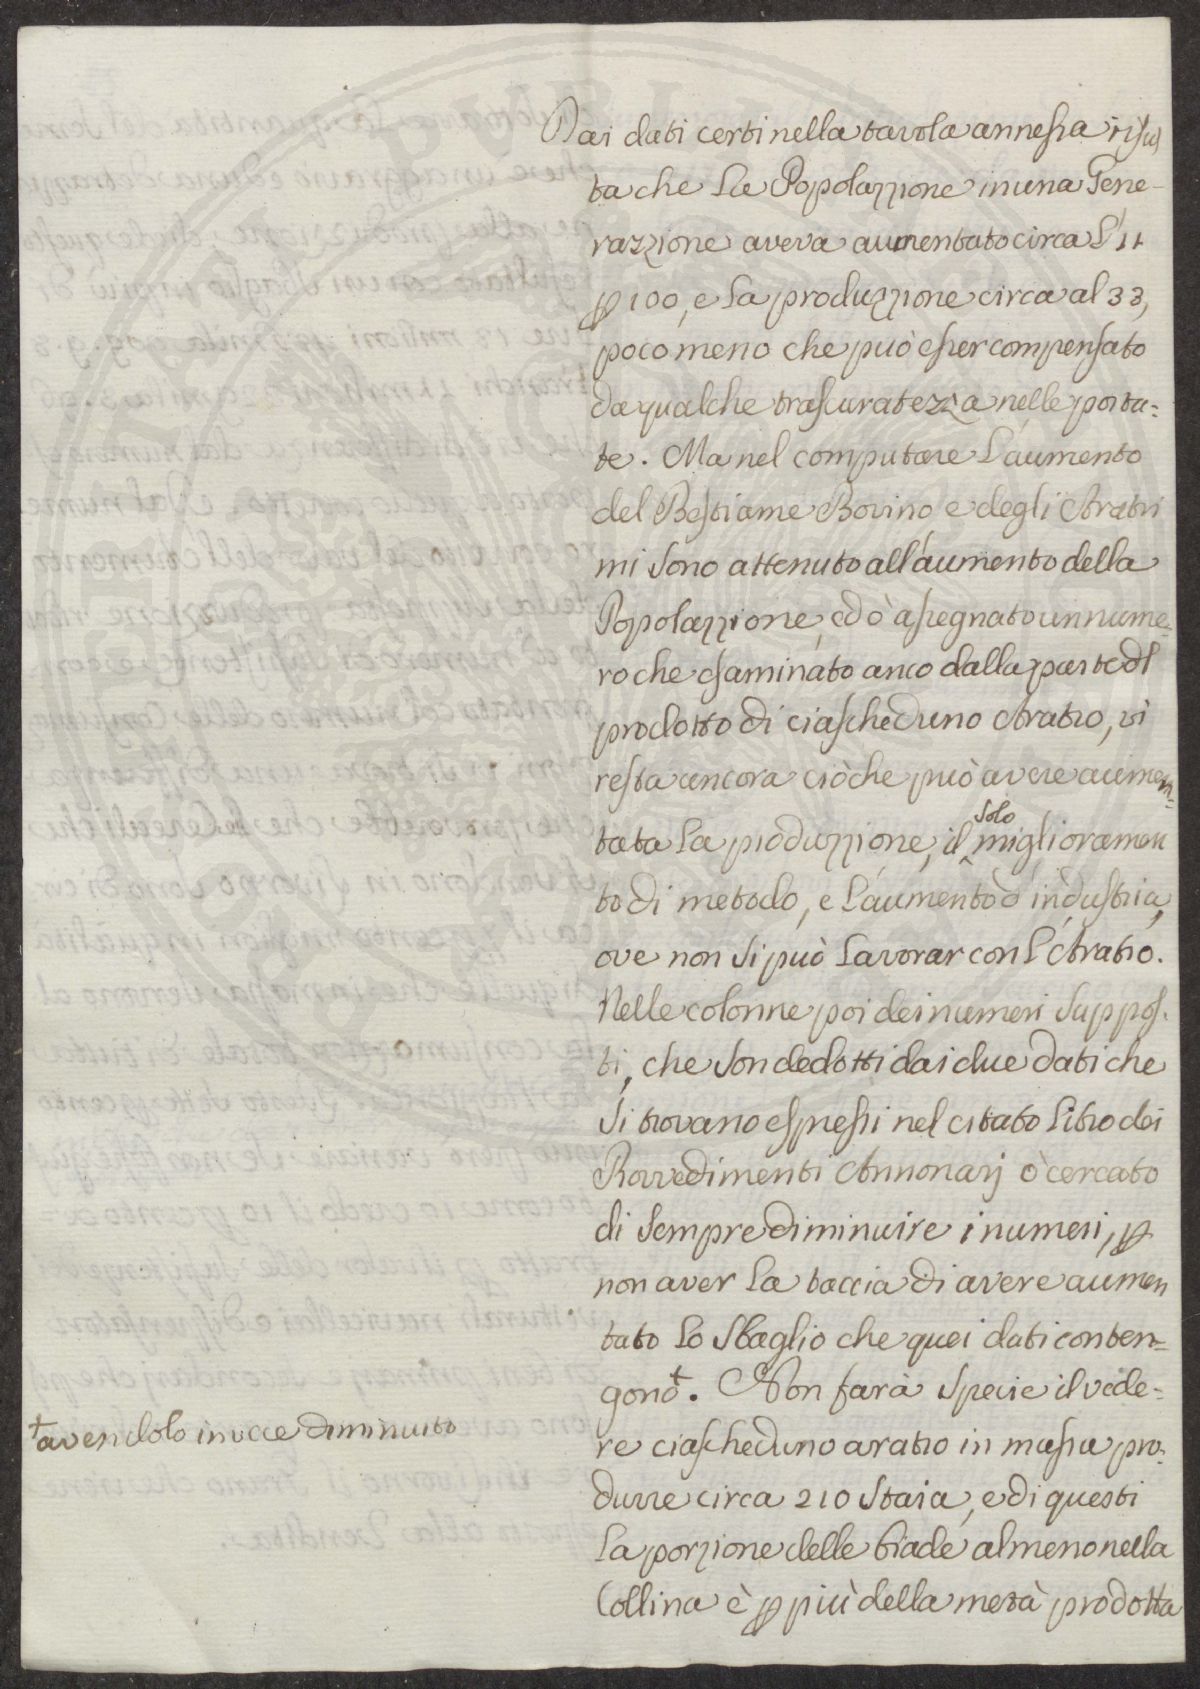 Dai dati certi nella tavola annessa risul
ta che la Popolazzione in una Gene-
razzione aveva aumentato circa l'11
p 100, e la produzzione circa al 33,
poco meno che può esser compensato
da qualche trascuratezza nelle porta=
te. Ma nel computare l'aumento
del Bestiame Bovino e degli Aratri
mi sono attenuto all'aumento della
Popolazzione, ed ò assegnato un nume=
ro che esaminato anco dalla parte del
prodotto di ciascheduno Aratro, vi
resta ancora ciò che può avere aumen=
tata la produzzione, il solo miglioramen
to di metodo, e l'aumento d'industria,
ove non si può lavorar con l'Aratro.
Nelle colonne poi dei numeri suppos-
ti, che son dedotti dai due dati che
si trovano espressi nel citato Libro dei
Provvedimenti Annonarj ò cercato
di sempre diminuire i numeri, p
non aver la taccia di avere aumen
tato lo sbaglio che quei dati conten=
gono†. Non farà specie il vede=
†avendolo invece diminuito
re ciascheduno aratro in massa pro=
durre circa 210 Staia, e di questi
la porzione delle biade almeno nella
Collina è p più della metà prodotta